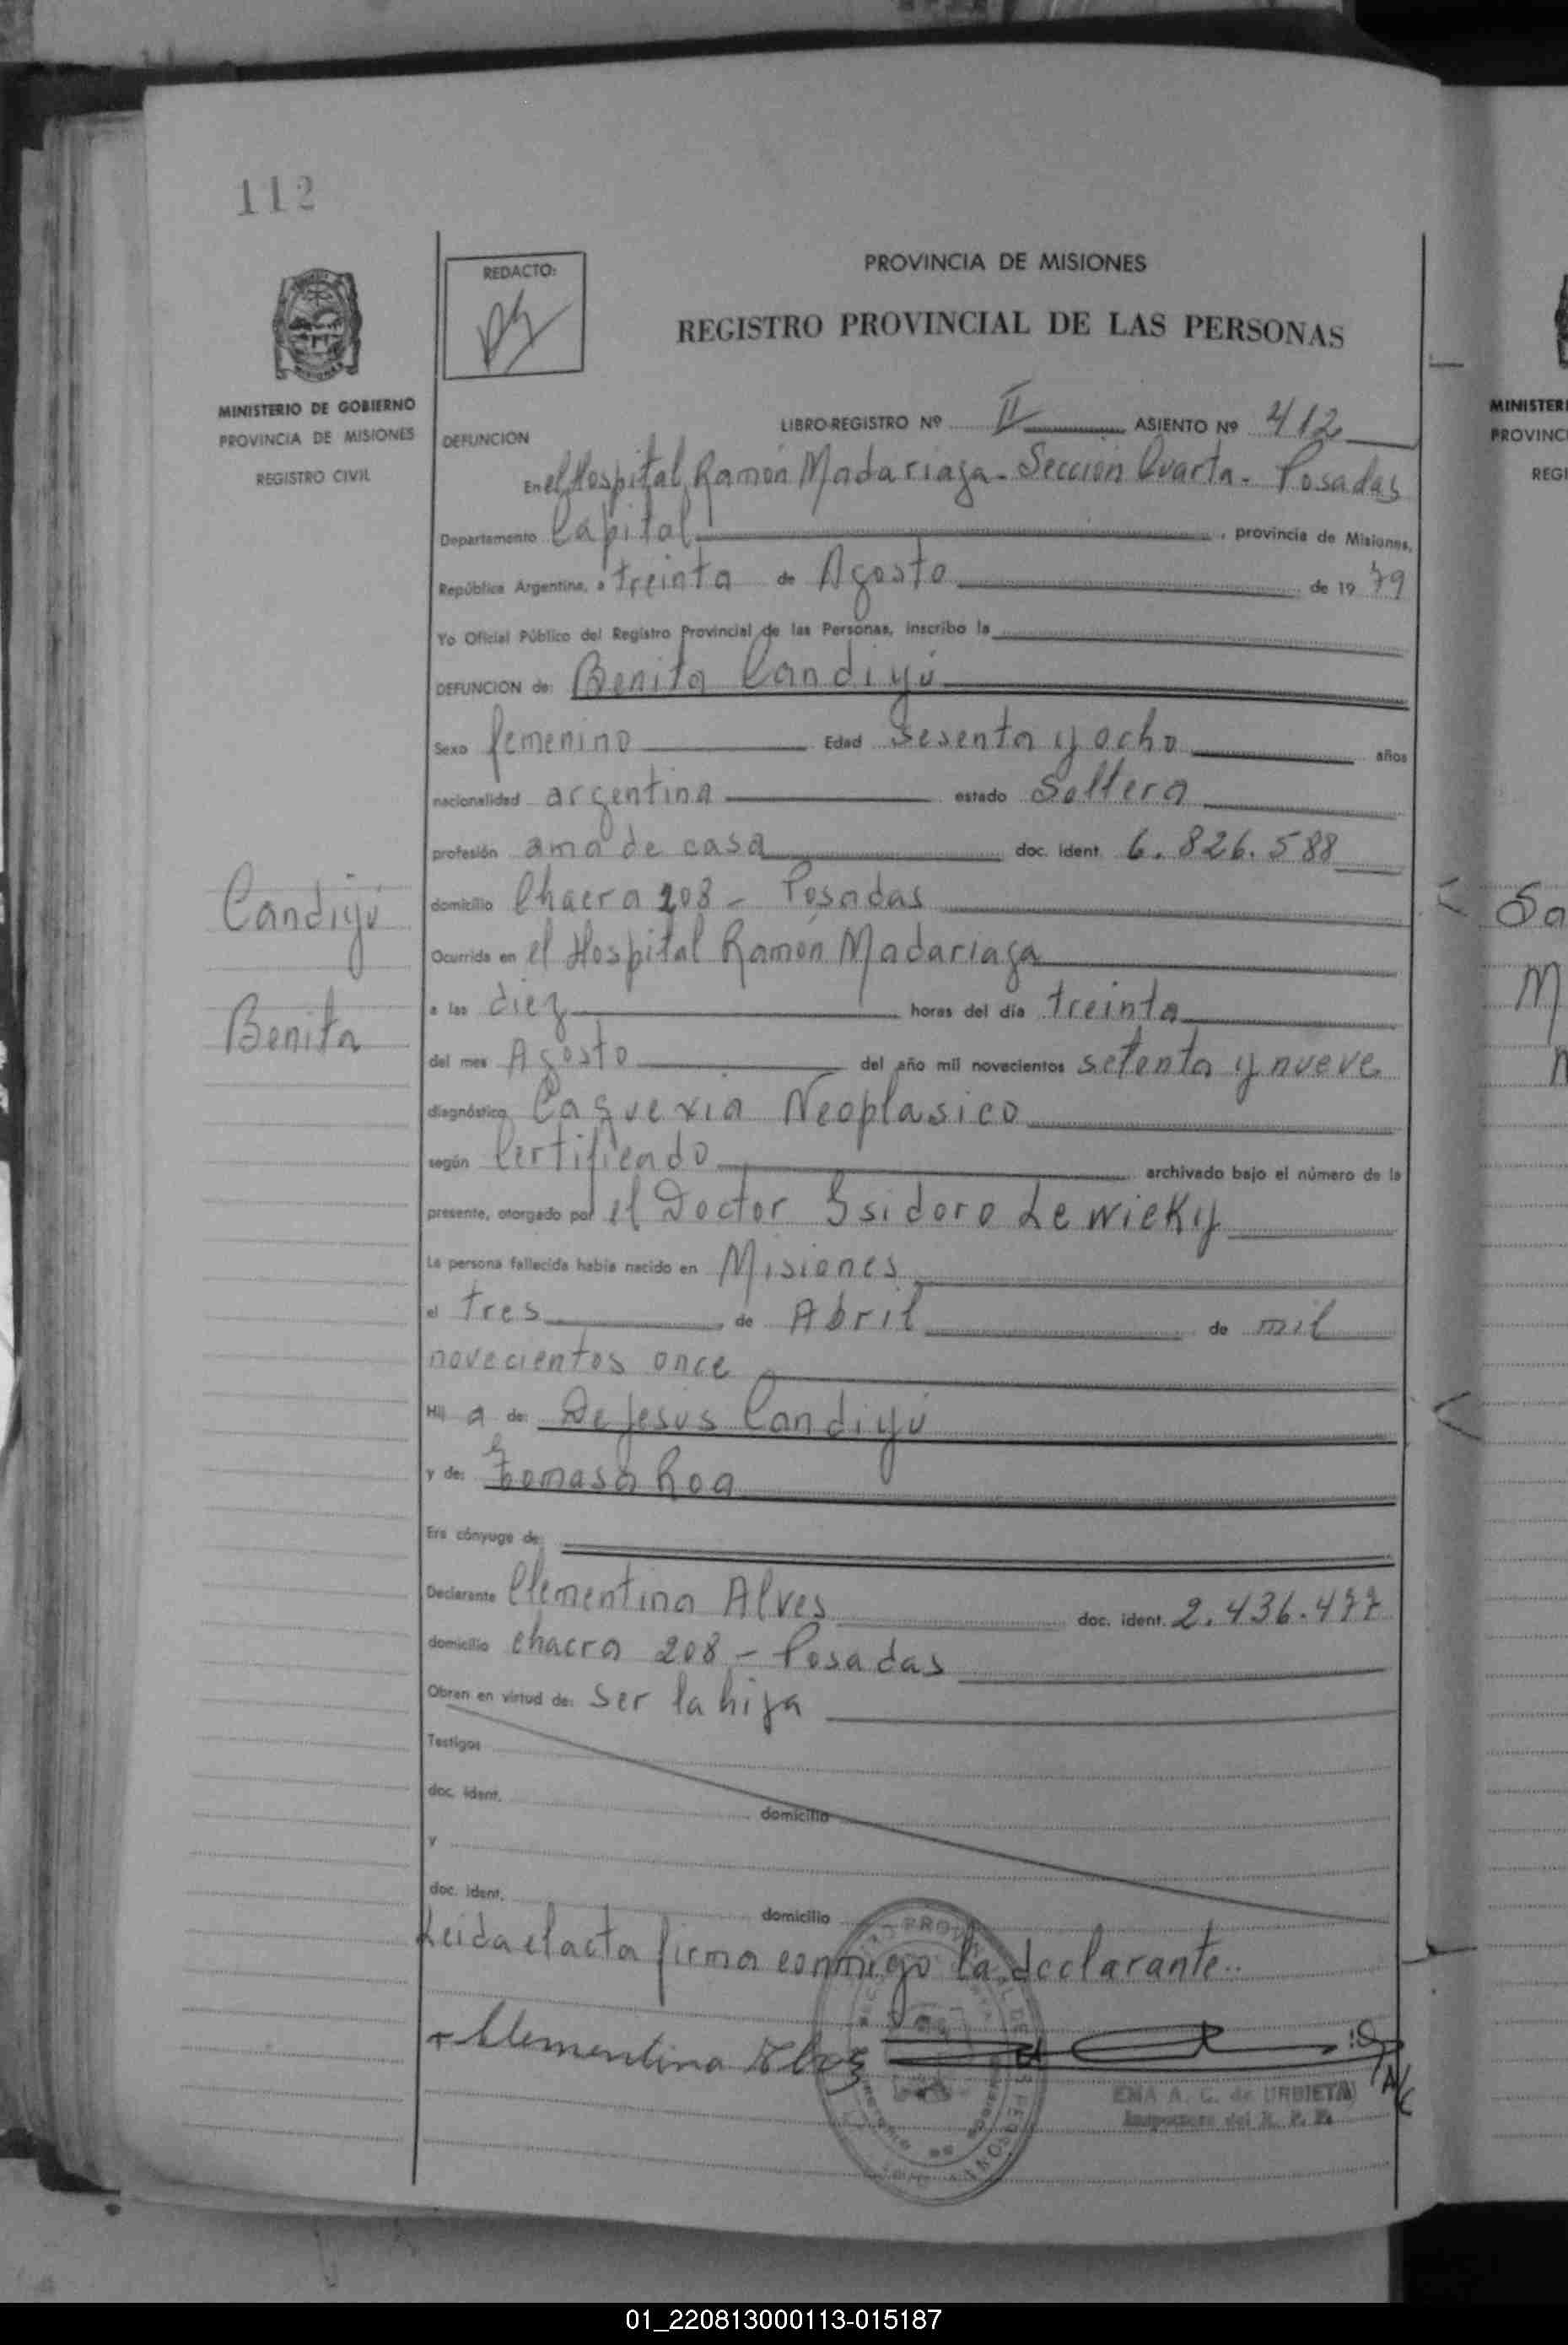 112
REDACTO:
PROVINCIA DE MISIONES
REGISTRO PROVINCIAL DE LAS PERSONAS
MINISTERIO DE GOBIERNO
PROVINCIA DE MISIONES
REGISTRO CIVIL
LIBRO-REGISTRO Nº II ASIENTO Nº 412
DEFUNCION
En el Hospital Ramón Madariaga - Sección Cuarta - Posadas
Departamento Capital, provincia de Misiones,
República Argentina, a treinta de Agosto de 1979
Yo Oficial Público del Registro Provincial de las Personas, inscribo la
DEFUNCION de: Benita Candiyú
Sexo femenino Edad Sesenta y ocho años
nacionalidad argentina estado Soltera
profesión ama de casa doc. ident. 6.826.588
Candiyú
domicilio Chacra 208 - Posadas
Ocurrida en el Hospital Ramón Madariaga
Benita
a las diez horas del día treinta
del mes Agosto del año mil novecientos setenta y nueve
diagnóstico Caquexia Neoplasico
según Certificado archivado bajo el número de la
presente, otorgado por el Doctor Isidoro Lewicky
La persona fallecida había nacido en Misiones
el tres de Abril de mil
novecientos once
Hij a de: De Jesús Candiyú
y de: Tomasa Roa
Era cónyuge de:
Declarante Clementina Alves doc. ident. 2.436.477
domicilio chacra 208 - Posadas
Obran en virtud de: ser la hija
Testigos
doc. ident. domicilio
y
doc. ident. domicilio
Leida el acta firma conmigo la declarante..
Clementina Alves
EMA A. C. de URBIETA
Inspectora del R. P. P.
MINISTERI
PROVINC
REGI
So
M
01_220813000113-015187